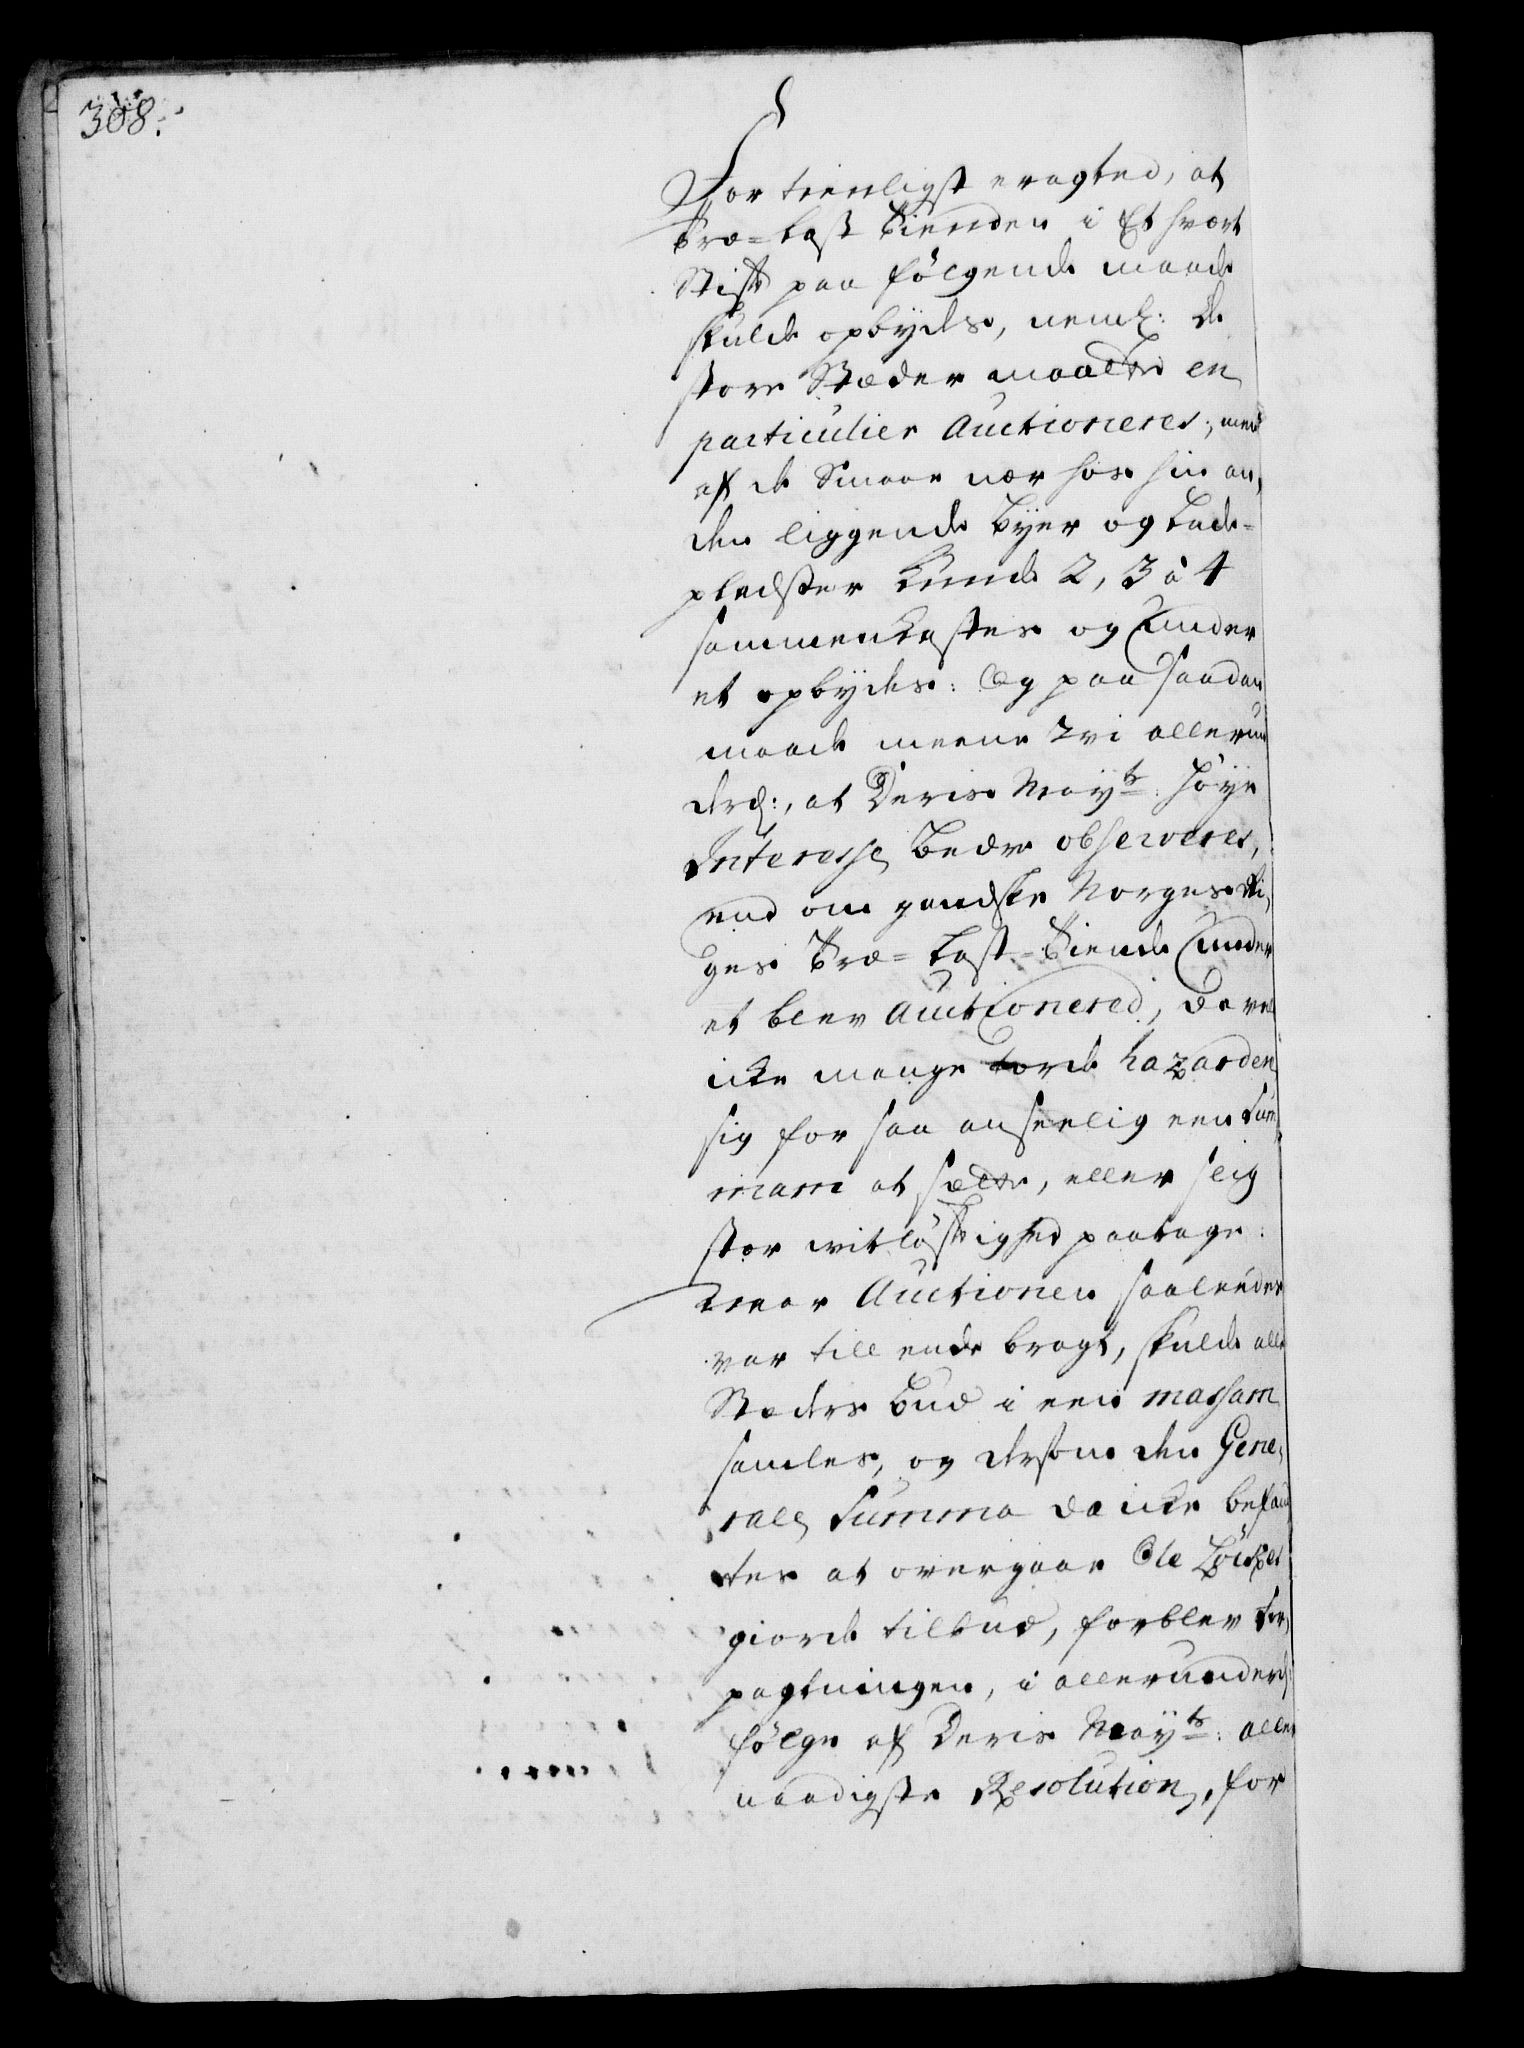 308.
For tienligst eragted, at
Træ-Last Tienden i Et hvert
Stift paa følgende maade
skulde opbydes, neml: de
store Stæder maatte en
particulier Auctioneres, men
af de Smaae nær hos hin an,
den liggende Byer og Lade-
pledster kunde 2, 3 à 4
sammenkastes og under
et opbydes: Og paa saadan
maade meene Wi allerun
derd:, at Deris Mayts: høye
Interesse bedre observeres,
end om gandske Norges Ri,
ges Træ-Last-Tiende under
et blev Auctionered, da vel
icke mange torde hazarden
sig for saa anseelig een Sum,
mam at sætte, eller slig
stor witløftighed paatage:
Naar Auctionen saaledes
var till ende bragt, skulde alle
Steders Bud i een massam
samles, og dersom den Gene,
rale Summa da icke befand
tes at overgaae Ole
giorde tilbud, forblev For,
pagtningen, i allerunderd:
følge af Deris Mayts: aller
naadigste Resolution, for